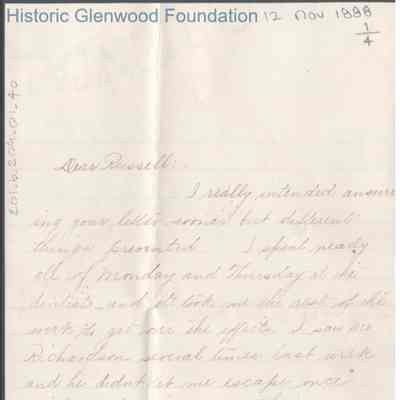 Historic Glenwood Foundation 12 Nov 1888
1/4
Dear Russell:
I really intended answer
ing your letter sooner but different
things prevented I spent nearly
all of Monday and Thursday at the
dentists and it took me the rest of the
week to get over the effects. I saw
Richardson several times last week
and he didn't let me escape once